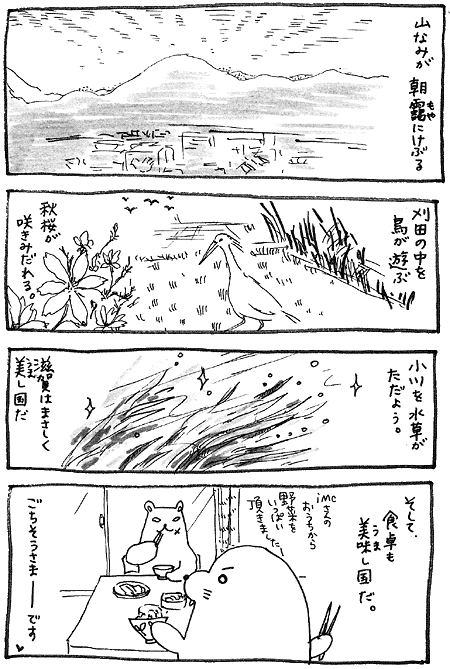 山なみが
朝靄にけぶる
もや
刈田の中を
鳥が遊ぶ
秋桜が
咲きみだれる。
小川を水草が
ただよう。
滋賀はまさしく
美し国だ
うま
そして、
食卓も
美味し国だ。
うま
imcさんの
おうちから
野菜を
いっぱい
頂きましたー
ごちそうさまーーです